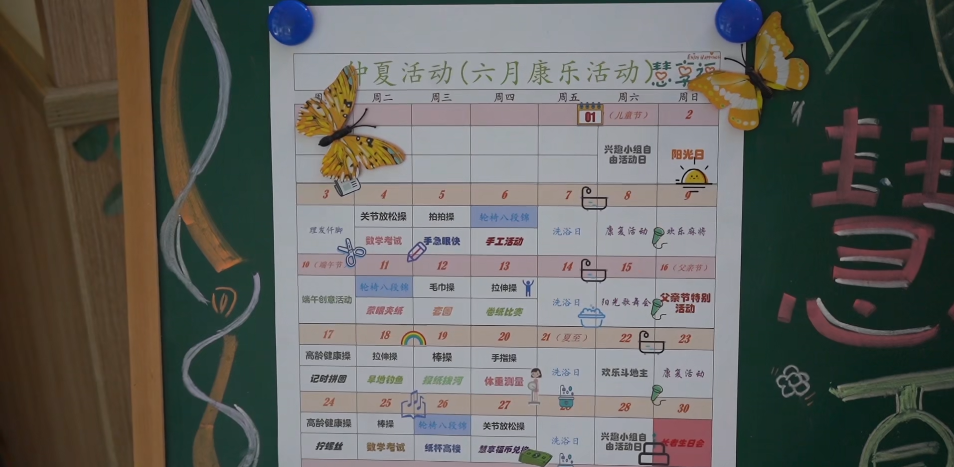 仲夏活动(六月康乐活动) 慧享福
周二 周三 周四 周五 周六 周日
01 (儿童节) 2
兴趣小组自由活动日 阳光日
3 4 5 6 7 8 9
关节放松操 拍拍操 轮椅八段锦
理发仟脚 洗浴日 康复活动 欢乐麻将
数学考试 手急眼快 手工活动
10 (端午节 11 12 13 14 15 16 (父亲节)
轮椅八段锦 毛巾操 拉伸操
端午创意活动 洗浴日 阳光歌舞会 父亲节特别活动
蒙眼夹纸 套圈 卷纸比赛
17 18 19 20 21 (夏至) 22 23
高龄健康操 拉伸操 棒操 手指操
洗浴日 欢乐斗地主 康复活动
记时拼图 旱地钓鱼 报纸拔河 体重测量
24 25 26 27 28 30
高龄健康操 棒操 轮椅八段锦 关节放松操
洗浴日 兴趣小组自由活动日 长者生日会
拧螺丝 数学考试 纸杯高楼 慧享福币兑换
慧